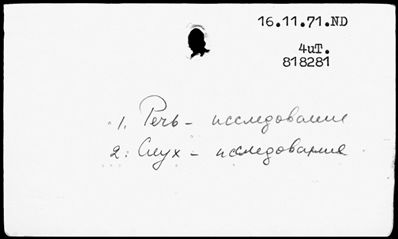 16.11.71.ND
4uT.
818281
1. Речь - исследование
2: Слух - исследование